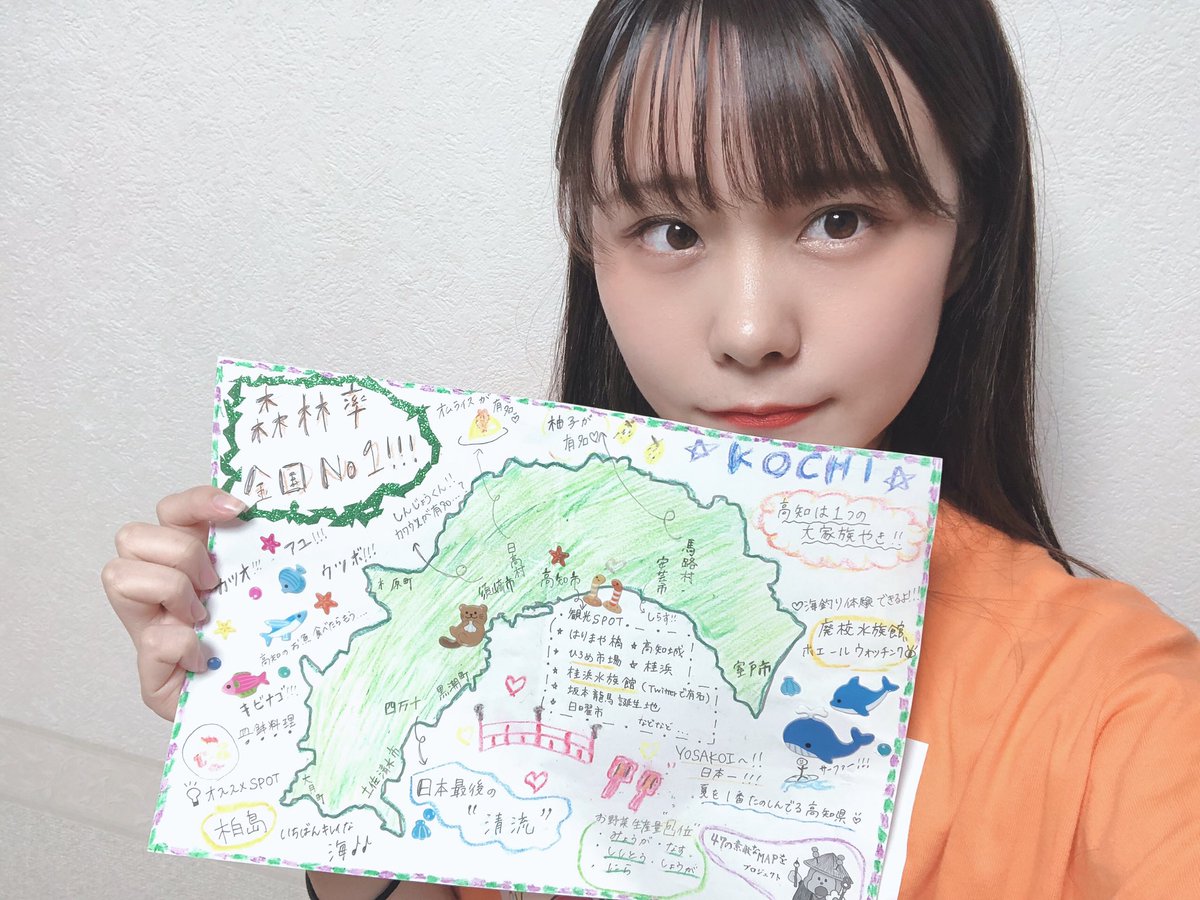 森林率
全国No1!!!
オムライスが有名♡
柚子が
有名♡
☆KOCHI☆
高知は1つの
大家族やき!!
しんじょうくん!!
カワウソが有名…?
アユ!!!
カツオ!!!
ウツボ!!!
高知のお魚食べたらもう…
キビナゴ!!!
皿鉢料理
梼原町
日高村
須崎市
高知市
安芸市
馬路村
室戸市
黒潮町
四万十
土佐清水市
大月町
しらす!!
・観光SPOT・
★ はりまや橋 ★ 高知城
★ ひろめ市場 ★ 桂浜
★ 桂浜水族館(Twitterで有名)
★ 坂本龍馬誕生地
★ 日曜市
などなど…
♡海釣り体験できるよ!!
廃校水族館
ホエールウォッチング
サーファー!!!
オススメSPOT
柏島
いちばんキレイな
海♪♪
日本最後の
"清流"
YOSAKOIへ!!
日本一!!!
夏を1番たのしんでる高知県
お野菜生産量"1位"
・みょうが・なす
・ししとう・しょうが
・にら
47の素敵なMAPを
プロジェクト